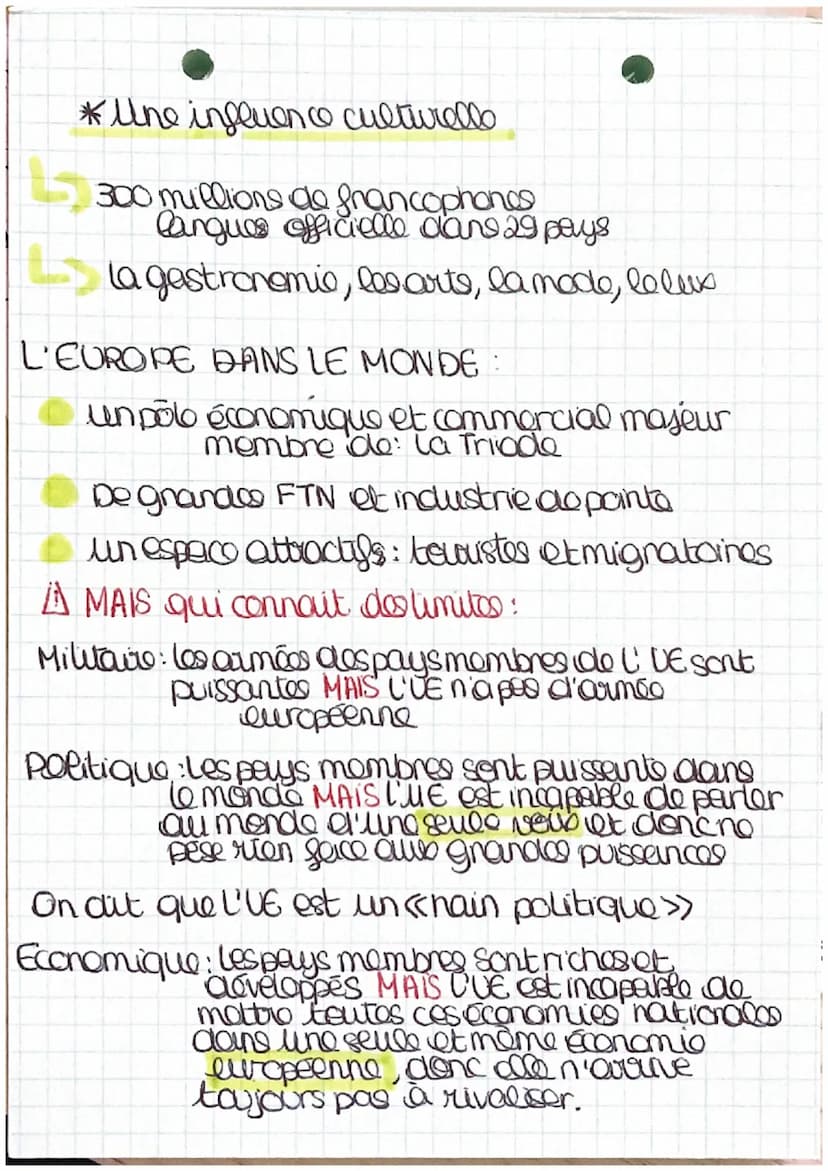 * Une influence culturelle
↳ 300 millions de francophones
langues officielle dans 29 pays
↳ la gastronomie, les arts, la mode, le lux
L'EUROPE DANS LE MONDE :
un pôle économique et commercial majeur
membre de: la Triade
De grandes FTN et industrie de pointe
un espace attractifs : touristes et migrataires
⚠ MAIS qui connait des limites :
Militaire : les armées des pays membres de l'UE sont
puissantes MAIS l'UE n'a pas d'armée
européenne
Politique : les pays membres sont puissants dans
le monde MAIS l'UE est incapable de parler
au monde d'une seule voix et donc ne
pèse rien face aux grandes puissances
On dit que l'UE est un «nain politique»
Economique : les pays membres sont riches et
développés MAIS l'UE est incapable de
mettre toutes ces économies nationales
dans une seule et même économie
européenne, donc elle n'arrive
toujours pas à rivaliser.